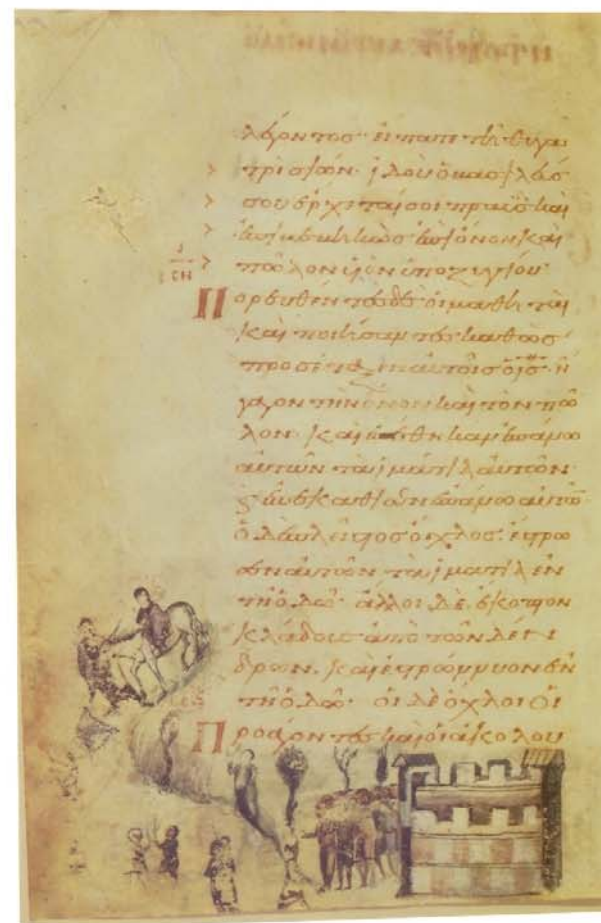 λέγοντος· εἴπατε τῆι θυγα
τρὶ σιών· ἰδοὺ ὁ βασιλεύσ
σου ἔρχεταί σοι πραῢσ καὶ
ἐπιβεβηκὼσ ἐπὶ ὄνον καὶ
πῶλον υἱὸν ὑποζυγίου·
Πορευθέντεσ δὲ οἱ μαθηταὶ
καὶ ποιήσαντεσ καθὼσ
προσέταξεν αὐτοῖσ ὁ ἰσ· ἤ
γαγον τὴν ὄνον καὶ τὸν πῶ
λον· καὶ ἐπέθηκαν ἐπάνω
αὐτῶν τὰ ἱμάτια αὐτῶν·
ϛ ἐπεκάθισεν ἐπάνω αὐτῶ
ὁ δὲ πλεῖστοσ ὄχλοσ· ἔστρω
σαν αὐτῶν τὰ ἱμάτια ἐν
τῆ ὁδῶ· ἄλλοι δὲ ἔκοπτον
κλάδουσ ἀπὸ τῶν δέν
δρων. καὶ ἐστρώννυον ἐν
τῆ ὁδῶ· οἱ δὲ ὄχλοι οἱ
Προάγοντεσ καὶ οἱ ἀκολου